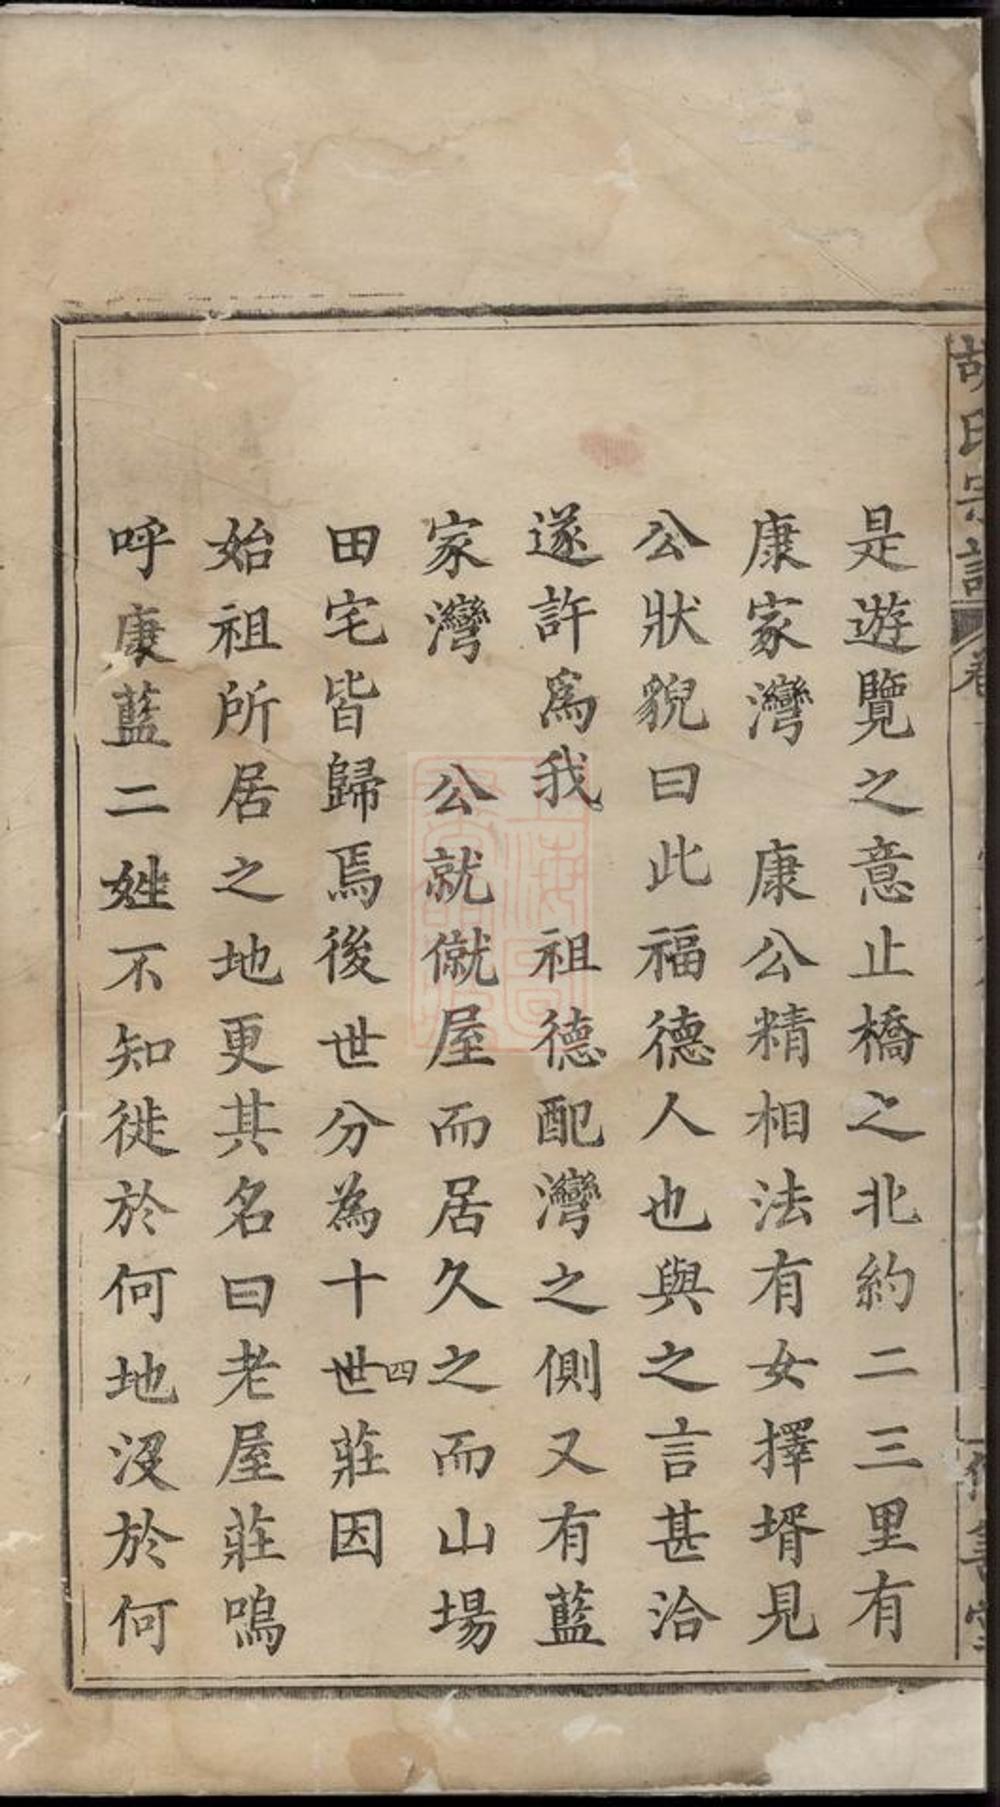 胡氏宗譜
是遊覽之意止橋之北約二三里有
康家灣 康公精相法有女擇壻見
公狀貌曰此福德人也與之言甚洽
遂許爲我 祖德配灣之側又有藍
家灣 公就僦屋而居久之而山場
田宅皆歸焉後世分為十世四莊因
始祖所居之地更其名曰老屋莊嗚
呼康藍二姓不知徙於何地沒於何